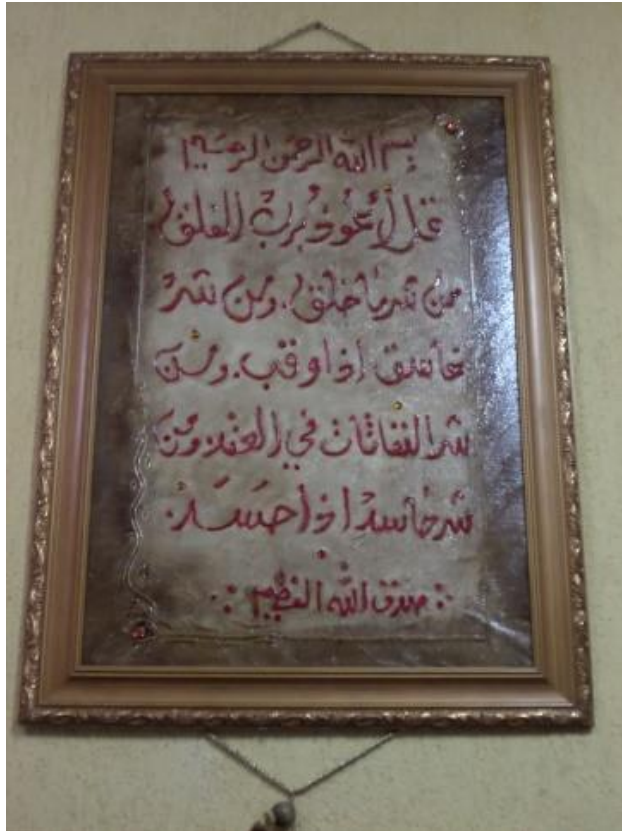 بسم الله الرحمن الرحيم
قل أعوذ برب الفلق
من شر ما خلق. ومن شر
غاسق إذا وقب. ومن
شر النفاثات في العقد ومن
شر حاسد اذا حسد
صدق الله العظيم